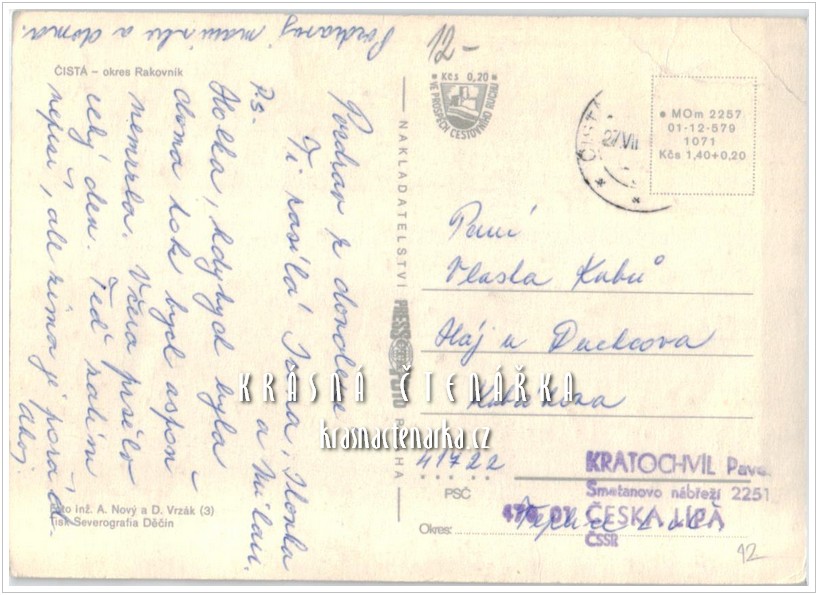 Pozdravuj maminku a doma.
12-
ČISTÁ – okres Rakovník
Pozdrav z dovolené
Ti posílá Jana, Ilonka
a Milan.
Ps.
Holka, kdybych byla
doma tak bych aspoň
nemrzla. Včera pršelo
celý den. Teď zatím
neprší, ale zima je pořád.
Ahoj.
Foto inž. A. Nový a D. Vrzák (3)
Tisk Severografia Děčín
NAKLADATELSTVÍ PRESSFOTO PRAHA
Kčs 0,20
VE PROSPĚCH CESTOVNÍHO RUCHU
ČISTÁ
27.VII
MOm 2257
01-12-579
1071
Kčs 1,40+0,20
Paní
Vlasta Kubů
Háj u Duchcova
41722
PSČ
Okres:
KRATOCHVÍL Pavel
Smetanovo nábřeží 2251
470 01 ČESKÁ LÍPA
ČSSR
12
KRÁSNÁ ČTENÁŘKA
krasnactenarka.cz